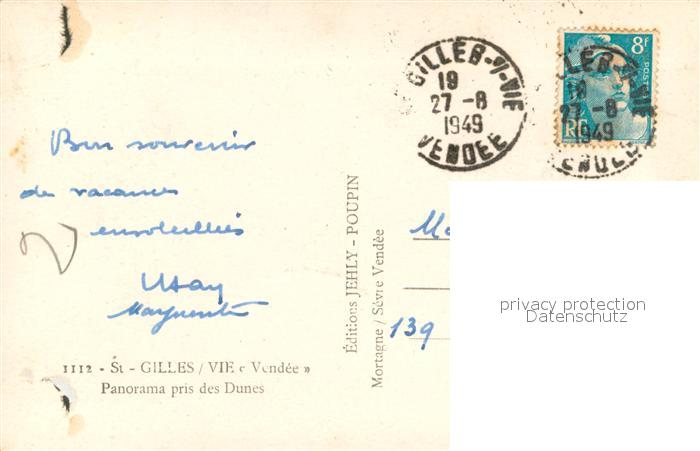 GILLES-s/-VIE
19
27 -8
1949
VENDEE
8F
POSTES
RF
GILLES-s/-VIE
19
27 -8
1949
VENDEE
Bon souvenir
de vacances
ensoleillées
Marguerite
2
1112 - St - GILLES / VIE « Vendée »
Panorama pris des Dunes
Éditions JEHLY - POUPIN
Mortagne / Sèvre Vendée
139
privacy protection
Datenschutz